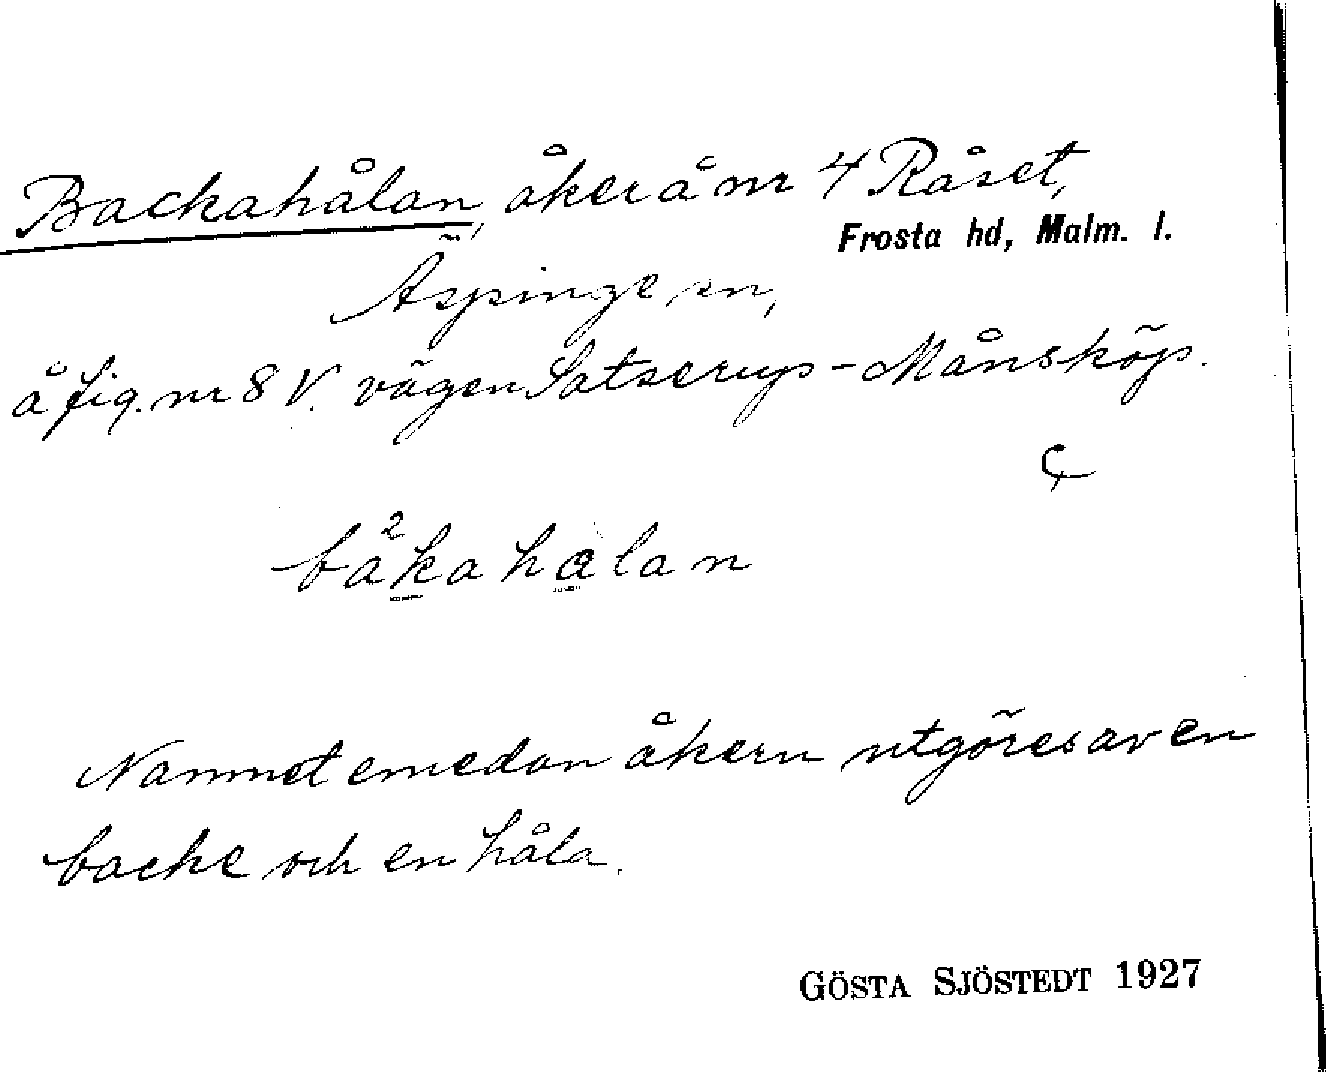 Backahålan, åker å nr 4 Råset,
Frosta hd, Malm. l.
Äspinge sn,
å fig. nr 8 V. vägen Satserup-Månsköp.
båkahalan
Namnet emedan åkern utgöres av en
backe och en håla.
GÖSTA SJÖSTEDT 1927